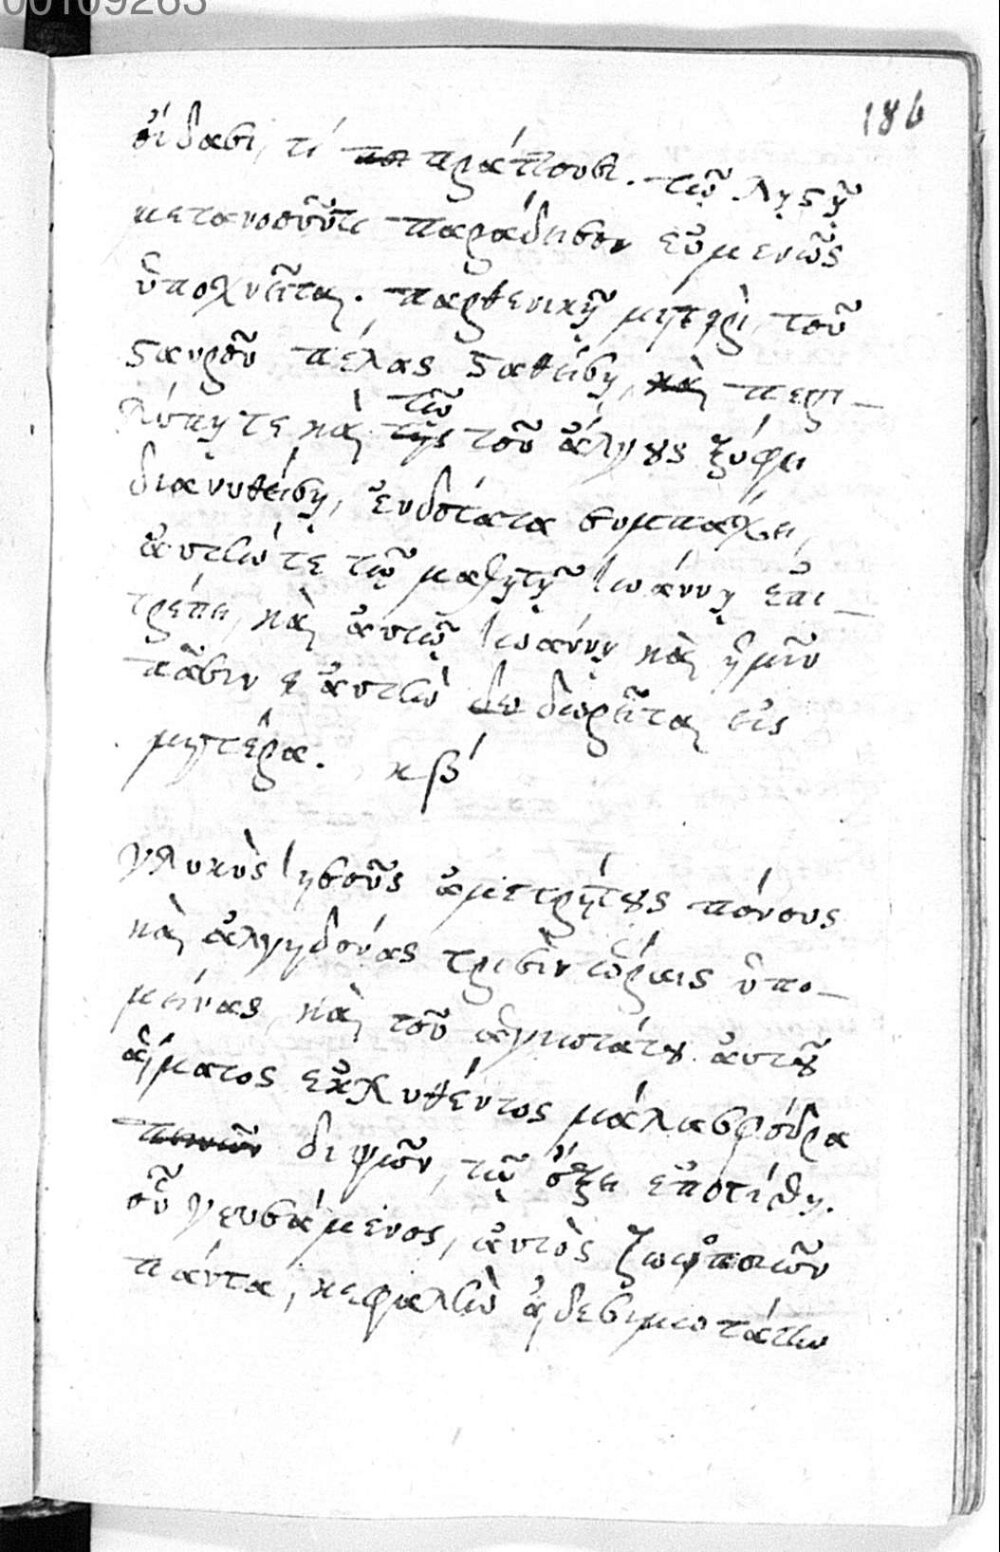 00109263
186
οἴδασι, τί πράττουσι. τῷ λῃστῇ
μετανοοῦντι παράδεισον εὐμενῶς
ὑπισχνεῖται. παρθενικῇ μητρὶ, τοῦ
σταυροῦ πέλας σταθείσῃ, καὶ περι-
λύπῃ τε καὶ τῷ τοῦ ἄλγους ξίφει
διανυθείσῃ, ἐνδοτάτα συμπάσχει,
αὐτὴν τε τῷ μαθητῇ Ἰωάννῃ ἐπι-
τρέπει, καὶ αὐτῷ Ἰωάννῃ καὶ ἡμῖν
πᾶσιν αὐτὴν δωρεῖται εἰς
μητέρα. κβ΄
γλυκὺς Ἰησοῦς ἀμετρήτους πόνους
καὶ ἀλγηδόνας τρισὶν ὥραις ὑπο-
μείνας, καὶ τοῦ ἁγιωτάτου αὐτοῦ
αἵματος ἐκχυθέντος μάλα σφόδρα
διψῶν, τῷ ὄξει ἐποτίθη.
οὗ γευσάμενος, αὐτὸς ζωοποιῶν
πάντα, κεφαλὴν αἰδεσιμωτάτην